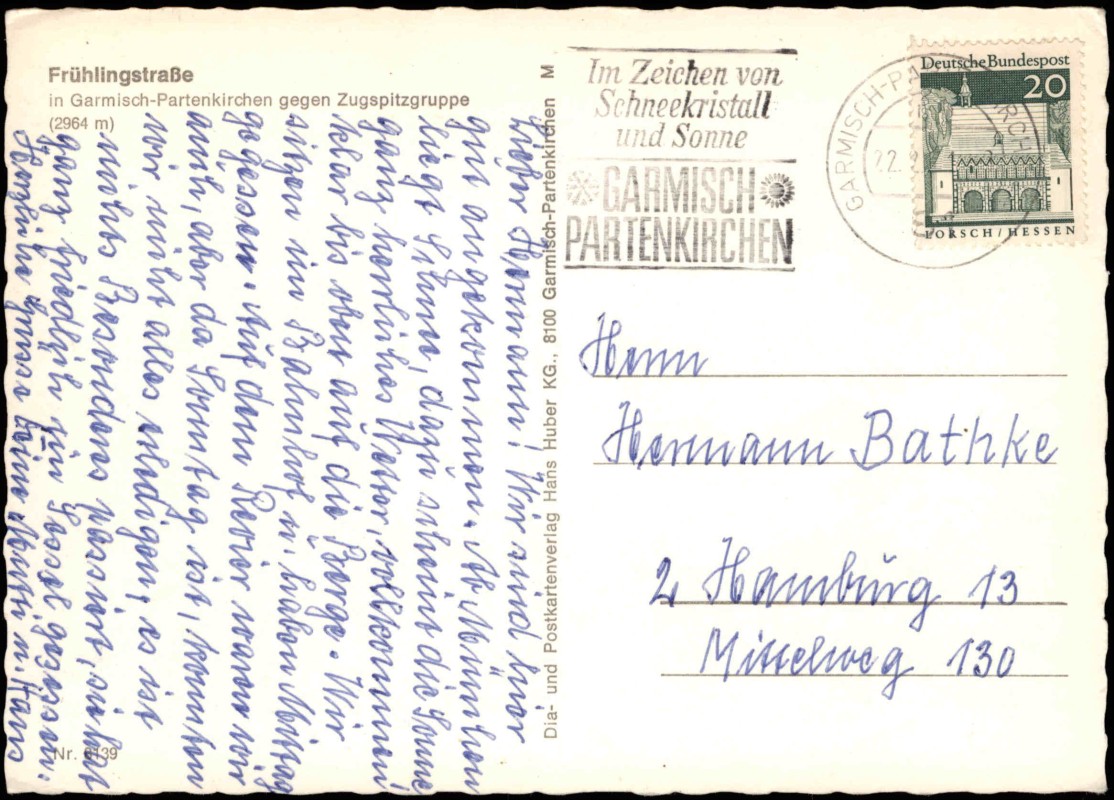 Frühlingstraße
in Garmisch-Partenkirchen gegen Zugspitzgruppe
(2964 m)
Lieber Hermann! Wir sind hier
gut angekommen. Ab München
liegt Schnee, dazu scheint die Sonne
ganz herrliches Wetter, vollkommen
klar bis oben auf die Berge. Wir
sitzen im Bahnhof u. haben Mittag
gegessen. Auf dem Revier waren wir
auch, aber da Sonntag ist, konnten
wir nicht alles erledigen, es ist
nichts Besonderes passiert, sieht
ganz friedlich aus
Herzliche Grüsse Deine Mutti u. Hans
Nr. 8139
Dia- und Postkartenverlag Hans Huber KG., 8100 Garmisch-Partenkirchen M
Im Zeichen von
Schneekristall
und Sonne
GARMISCH
PARTENKIRCHEN
GARMISCH-PA RCH
22.
Deutsche Bundespost
20
LORSCH/HESSEN
Herrn
Hermann Bathke
2 Hamburg 13
Mittelweg 130